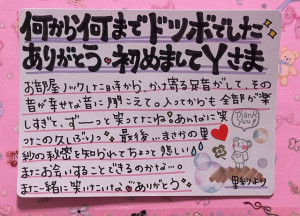 何から何までドツボでした
ありがとう 初めましてYさま
お部屋ノックした時から、かけ寄る足音がして、その
音が幸せな音に聞こえての。入ってからも全部が楽
しすぎて、ずーっと笑ってたね。あんなに笑
ったの久しぶり 最後…まさかの里
紗の秘密を知られてちょっと悲しい
またお会いすることできるのかな…。
また一緒に笑いたいな。ありがとう
Thank You!
里紗より